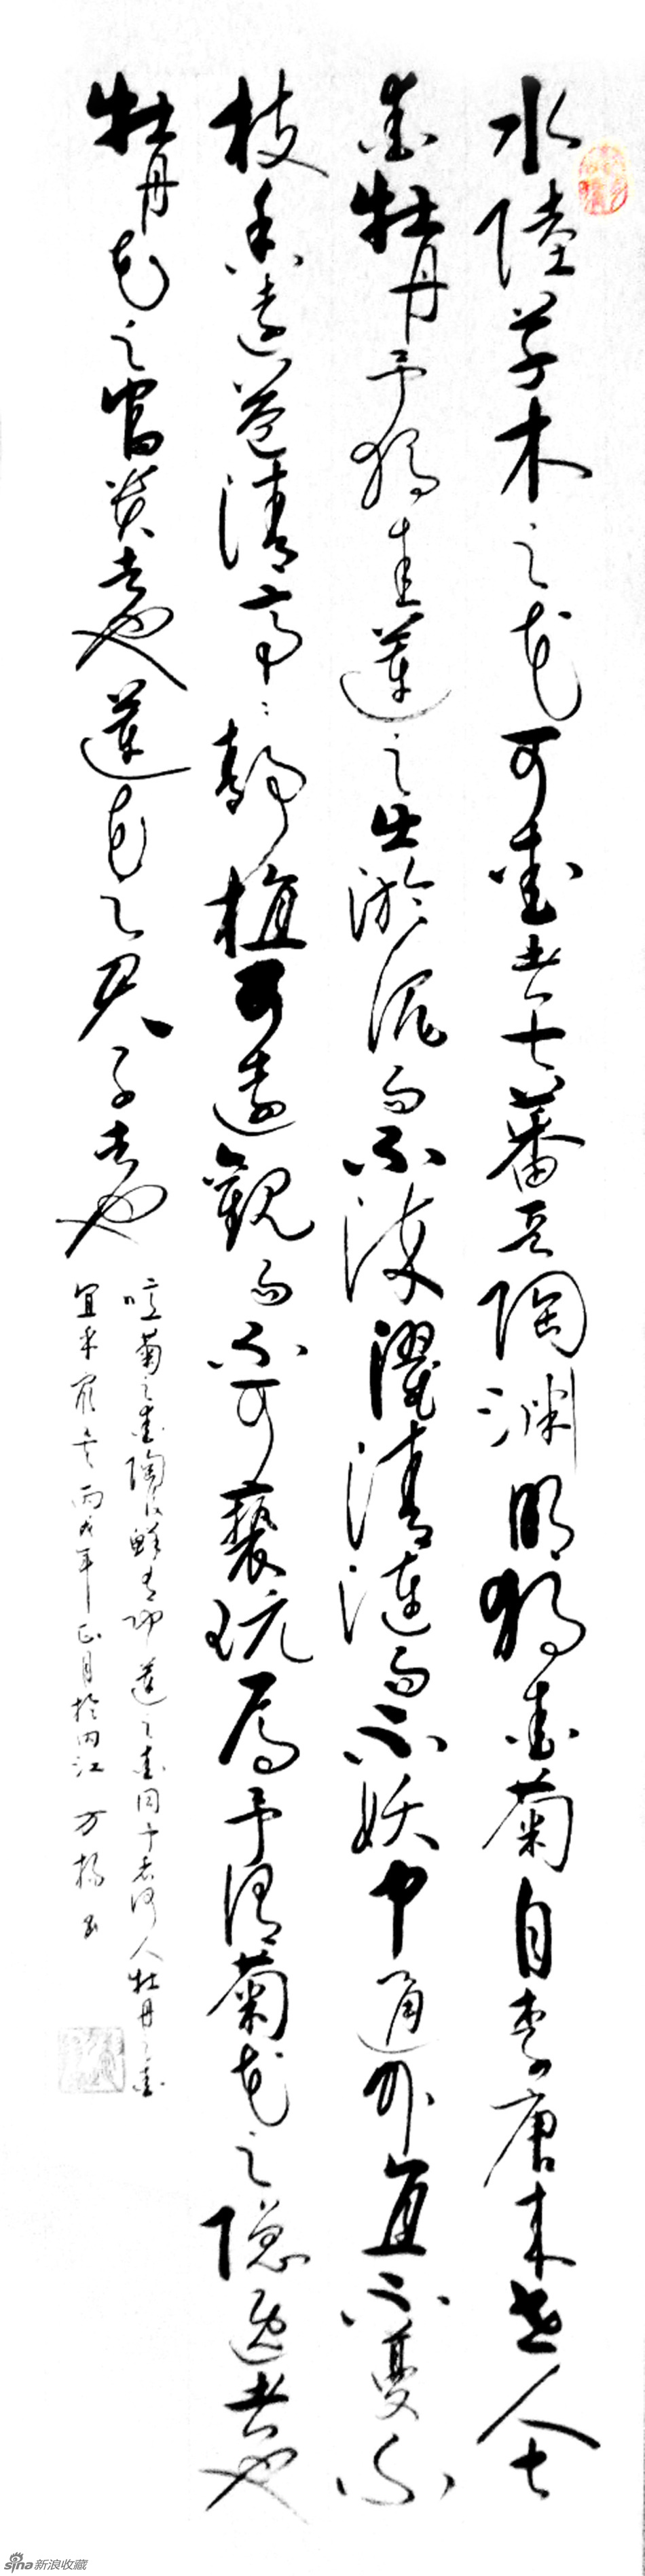 水陸草木之花可愛者甚蕃晋陶渊明獨愛菊自李唐来世人甚
愛牡丹予獨愛蓮之出淤泥而不染濯清漣而不妖中通外直不蔓不
枝香遠益清亭〻靜植可遠觀而不可褻玩焉予謂菊花之隱逸者也
牡丹花之富貴者也蓮花之君子者也
噫菊之愛陶後鮮有聞蓮之愛同予者何人牡丹之愛
宜乎眾矣丙戌年正月於内江 方楊书
sina新浪收藏